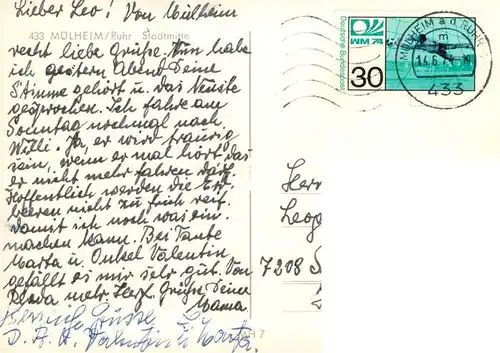 Lieber Leo! Von Mülheim
433 MÜLHEIM/Ruhr Stadtmitte
recht liebe Grüße. Nun habe
ich gestern Abend Deine
Stimme gehört u. das Neuste
gesprochen. Ich fahre am
Sonntag nochmal nach
Willi. Ja, er wird traurig
sein, wenn er mal hört das
er nicht mehr fahren darf.
Hoffentlich werden die Erd-
beeren nicht zu früh reif,
damit ich noch was ein-
machen kann. Bei Tante
Marta u. Onkel Valentin
gefällt es mir sehr gut. Von
mehr. Herzl. Grüße Deine
Mama.
Grüsse
Valentin
Deutsche Bundespost
WM 74
30
MÜLHEIM a.d. RUHR 1
m
14.6.74
433
Herr
Leop
7208 S